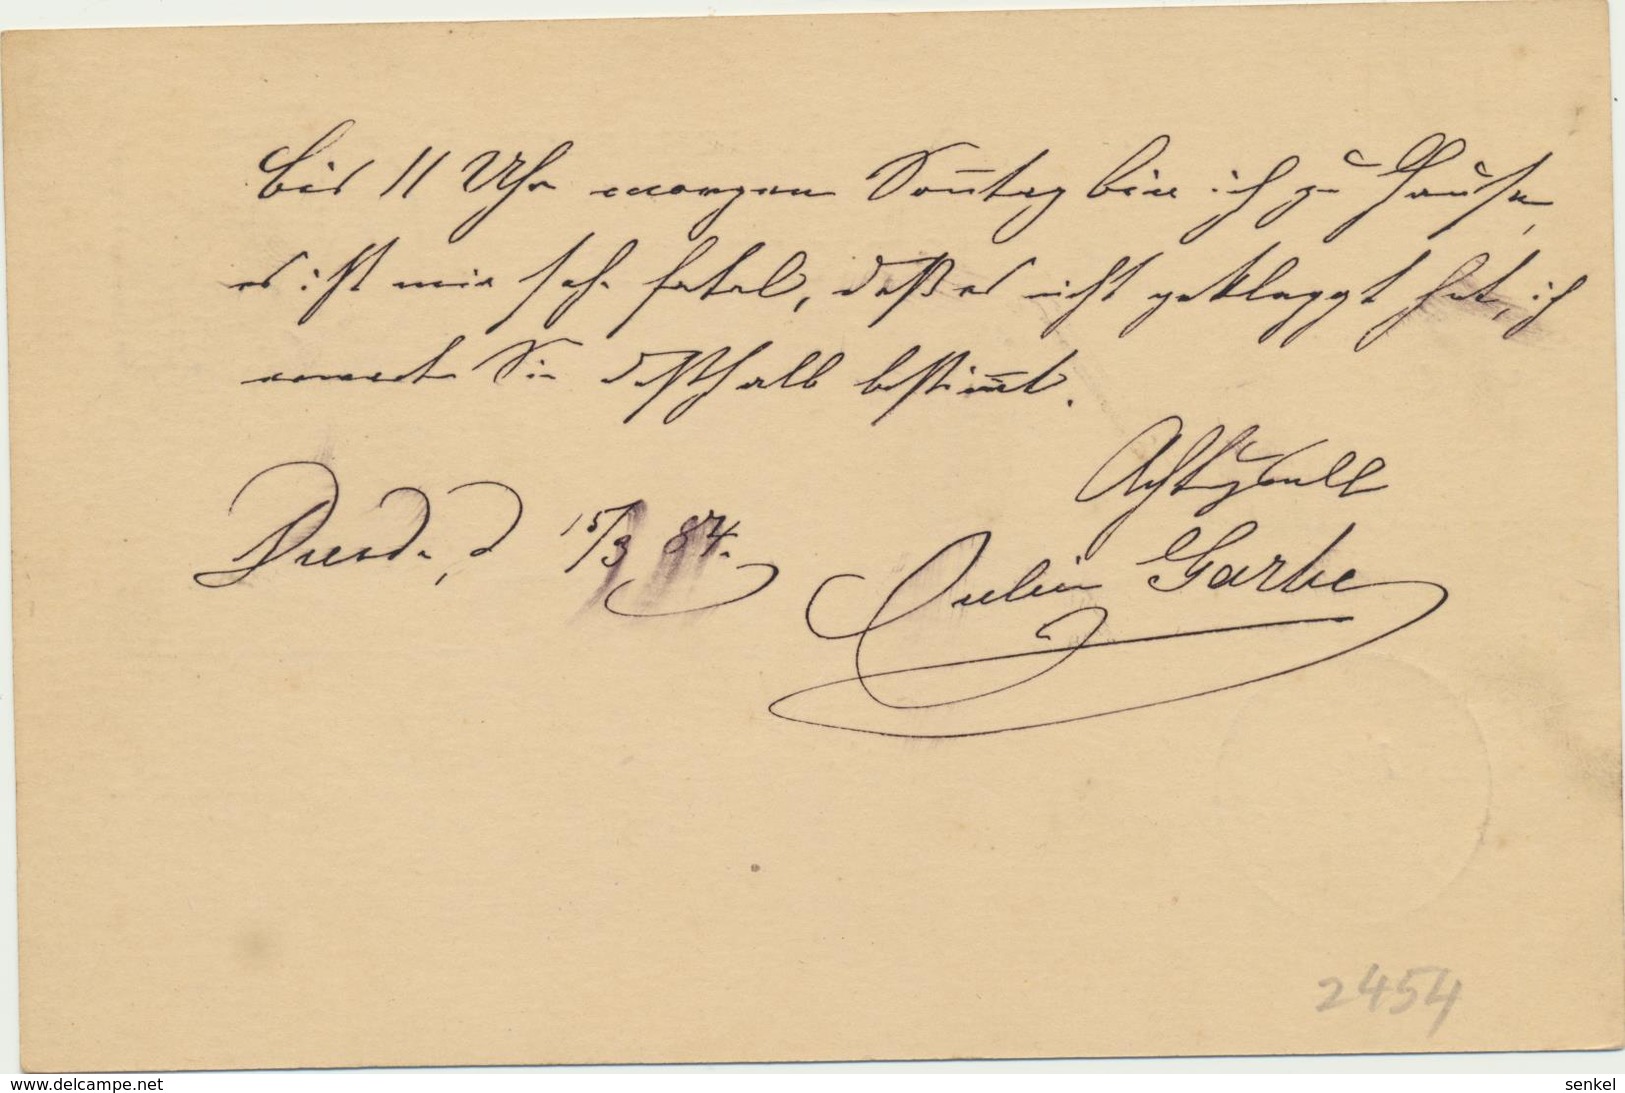 Bis 11 Uhr morgen Sonntag bin ich zu Hause,
es ist mir sehr fatal, daß es nicht geklappt hat, ich
erwarte Sie deßhalb bestimmt.
Achtungsvoll
Dresden, d 15/3 84.
Garbe
2454
www.delcampe.net
senkel